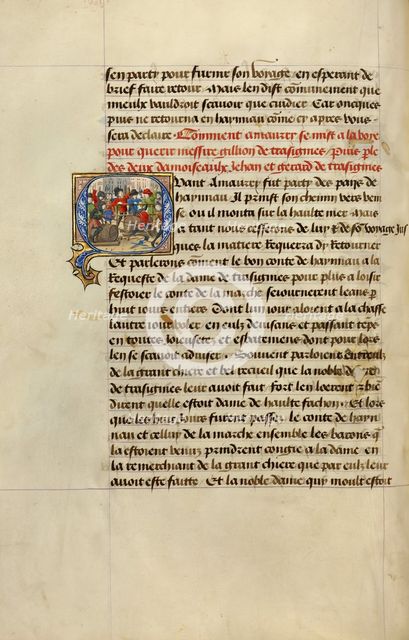 sen party pour furnir son voyage / en esperant de
brief faire retour Mais len dist communement que
mieulx vauldroit scavoir que cuidier Car oncques
puis ne retourna en haynnau come cy apres vous
sera declaire Comment amaury se mist a la voye
pour querir messire gillion de trasignies / puis ple
des deux damoiseaulx Jehan et gerard de trasignies
Quant Amaury fut party des pays de
haynnau Il prinst son chemin vers veni
se ou il monta sur la haulte mer Mais
a tant nous cesserons de luy & de so voyage Jus
ques la matiere Requerra dy Retourner
Et parlerons coment le bon conte de haynnau a la
Requeste de la dame de trasignies pour plus a loisir
festoier le conte de la marche seiournerent leans p
huit iours entiers Dont lun iour aloient a la chasse
lautre iour voler en eulx deuisans et passant teps
en toutes ioieusetez et esbatemens dont pour lors
len se scavoit aduiser Souvent parloient entreulx
de la grant chiere et bel recueil que la noble
de trasignies leur avoit fait fort len loerent & bie
dirent quelle estoit dame de haulte fachon Et lors
que les huit iours furent passez le conte de hayn
nau et cellui de la marche ensemble les barons q
la estoient venus prindrent congie a la dame en
la remerchiant de la grant chiere que par eulx leur
avoit este faitte Et la noble dame quy moult estoit
Heritage
Heritage